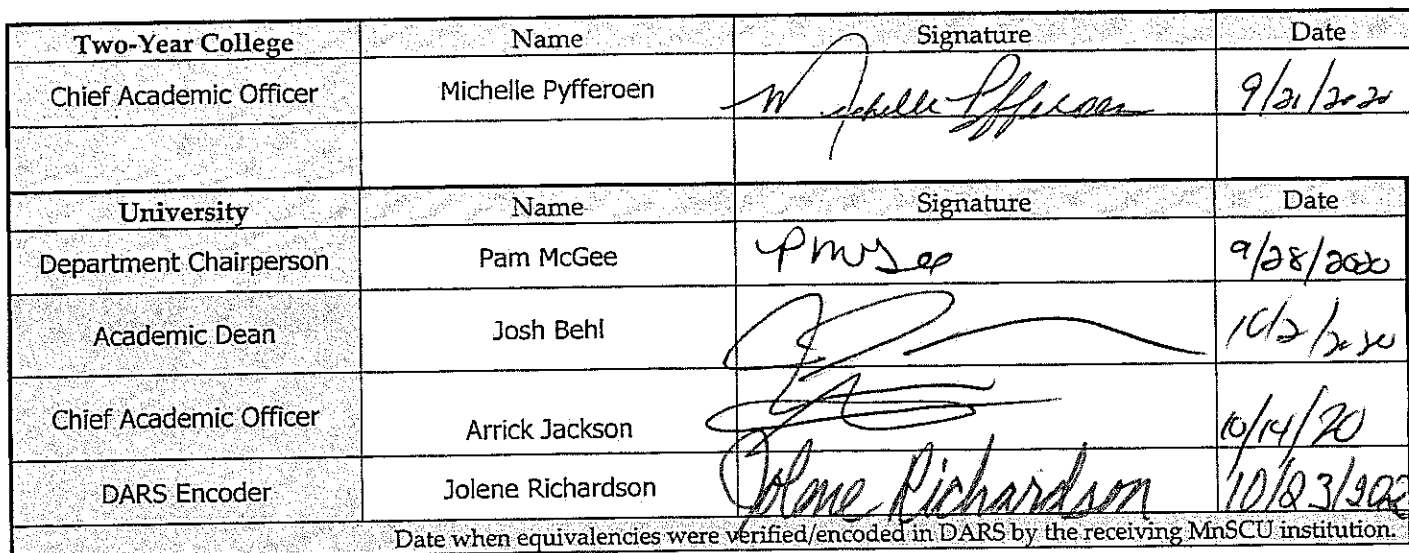 Two-Year College Name Signature Date
Chief Academic Officer Michelle Pyfferoen Michelle Pyfferoen 9/21/2020
University Name Signature Date
Department Chairperson Pam McGee PMcGee 9/28/2020
Academic Dean Josh Behl 10/2/2020
Chief Academic Officer Arrick Jackson 10/14/20
DARS Encoder Jolene Richardson Jolene Richardson 10/23/202
Date when equivalencies were verified/encoded in DARS by the receiving MnSCU institution.